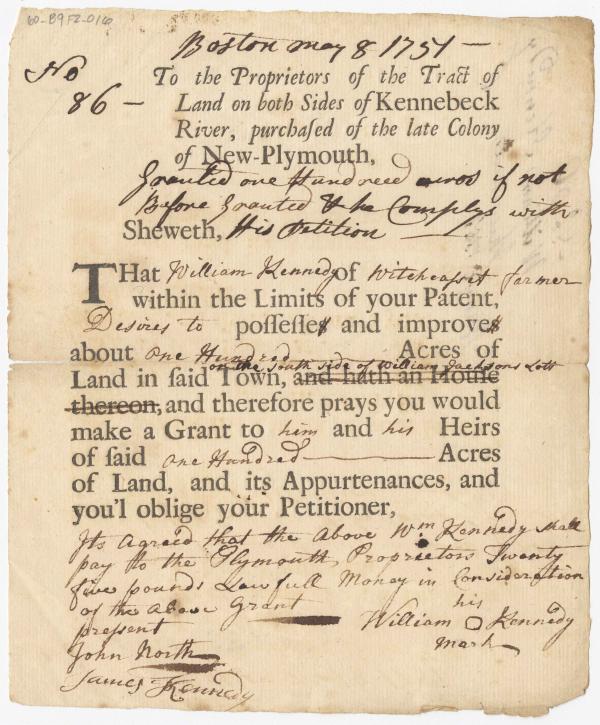 60-B9F2-016
Boston may 8 1751 —
No
86 —
To the Proprietors of the Tract of
Land on both Sides of Kennebeck
River, purchaſed of the late Colony
of New-Plymouth,
Granted one Hundreed acros if not
Before Granted & he Complys with
Sheweth, His Petition —
THat William Kennedy of Witcheasset farmer
within the Limits of your Patent,
Desires to poſſeſſes and improves
about one Hundred Acres of
on the South side of William Jacksons Lott
Land in ſaid Town, and hath an Houſe
thereon, and therefore prays you would
make a Grant to him and his Heirs
of ſaid one Hundred — Acres
of Land, and its Appurtenances, and
you'l oblige your Petitioner,
Its Agreed that the Above Wm Kennedy shall
pay to the Plymouth Proprietors Twenty
five pounds Lawfull Money in Consideration
of the Above Grant —
present
his
William Kennedy
mark
John North
James Kennedy